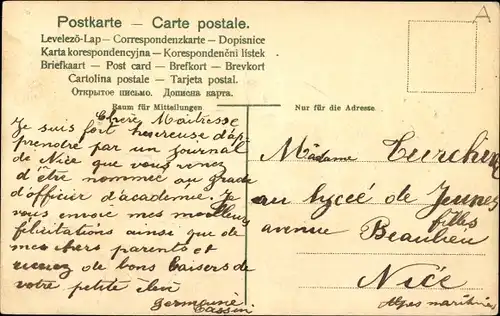 A
Postkarte – Carte postale.
Levelező-Lap – Correspondenzkarte – Dopisnice
Karta korespondencyjna – Korespondenční lístek
Briefkaart – Post card – Brefkort – Brevkort
Cartolina postale – Tarjeta postal.
Открытое письмо. Дописна карта.
Raum für Mitteilungen
Nur für die Adresse
Chère Maîtresse
Je suis fort heureuse d'ap-
prendre par un journal
de Nice que vous venez
d'être nommée au grade
d'officier d'académie. Je
vous envoie mes meilleurs
félicitations ainsi que de
mes chers parents et
recevez de bons baisers de
votre petite élève
Germaine
Cassin
Madame
au lycée de Jeunes
filles
avenue Beaulieu
Nice
Alpes maritimes